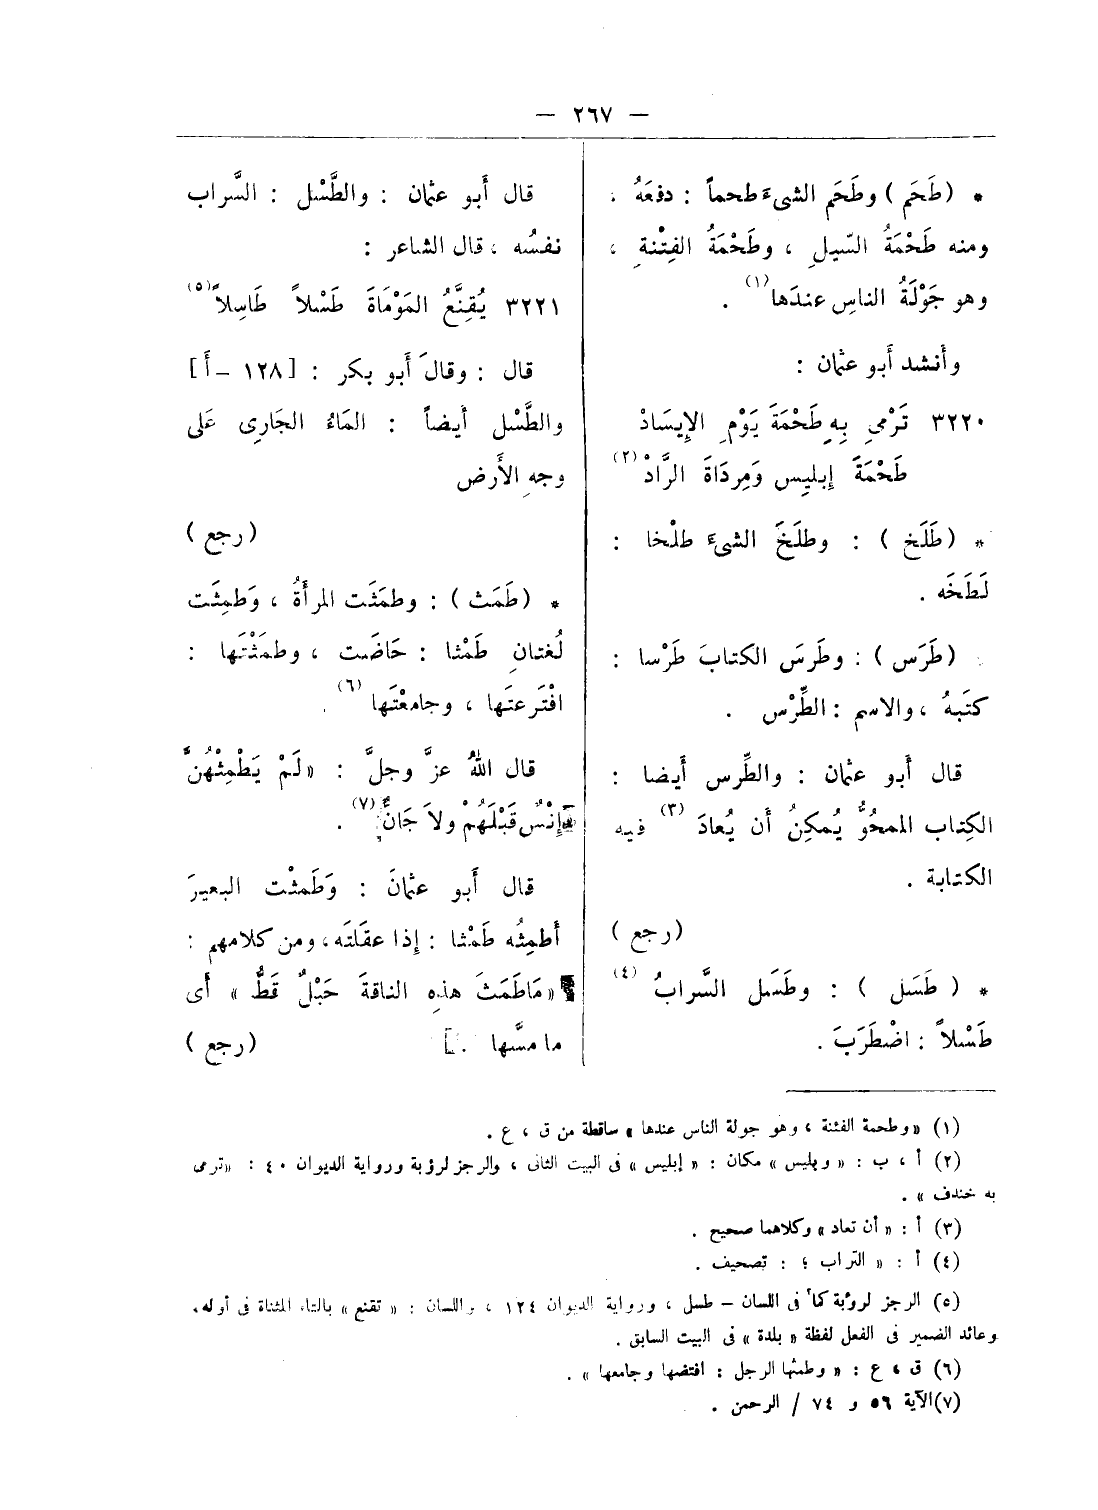 — ٢٦٧ —
* (طَحَم) وطَحَم الشىءَ طحماً : دفعَهُ .
ومنه طَحْمَةُ السّيلِ ، وطَحْمَةُ الفِتْنةِ ،
وهو جَوْلَةُ الناسِ عندَها(١) .
وأنشد أبو عثمان :
٣٢٢٠ تَرْمىِ بِهِ طَحْمَةَ يَوْمِ الإِيسَادْ
طَحْمَةَ إبليِس وَمِردَاةَ الرَّادْ(٢)
* (طَلَخ) : وطلَخَ الشىءَ طلْخا :
لَطَخَه .
(طرَس) : وطَرسَ الكتابَ طَرْسا :
كتَبهُ ، والاسم : الطِّرْس .
قال أبو عثمان : والطِّرس أيضا :
الكِتاب الممحُوُّ يُمكِنُ أن يُعادَ(٣) فيه
الكتابة .
(رجع)
* (طَسَل) : وطَسَل السَّرابُ(٤)
طَسْلاً : اضْطَرَبَ .
قال أَبو عثمان : والطَّسْل : السَّراب
نفسُه ، قال الشاعر :
٣٢٢١ يُقنِّعُ المَوْمَاةَ طَسْلاً طَاسِلاً(٥)
قال : وقالَ أَبو بكر : [١٢٨ – أَ]
والطَّسْل أيضاً : المَاءُ الجَارِى عَلى
وجهِ الأَرض
(رجع)
* (طَمَث) : وطمَثَت المرأَةُ ، وَطمِثَت
لُغتانِ طَمْثا : حَاضَت ، وطمَثْتَها :
افْتَرعتَها ، وجامعْتَها(٦) .
قال اللهُ عزَّ وجلَّ : «لَمْ يَطْمِثْهُنَّ
إِنْسٌ قَبْلَهُمْ ولاَ جَانٌّ»(٧) .
قال أَبو عثمانَ : وَطَمثْت البعيرَ
أطمِثُه طَمْثا : إذا عقَلتَه ، ومن كلامهم :
«مَاطَمَثَ هذِه الناقةَ حَبْلٌ قَطُّ» أى
ما مسَّها .] (رجع)
(١) «وطحمة الفتنة ، وهو جولة الناس عندها» ساقطة من ق ، ع .
(٢) أ ، ب : «وبليس» مكان : «إبليس» فى البيت الثانى ، والرجز لرؤبة ورواية الديوان ٤٠ : «ترمى
به خندف» .
(٣) أ : «أن تعاد» وكلاهما صحيح .
(٤) أ : «التراب» : تصحيف .
(٥) الرجز لرؤبة كما فى اللسان – طسل ، ورواية الديوان ١٢٤ ، واللسان : «تقنع» بالتاء المثناة فى أوله،
وعائد الضمير فى الفعل لفظة «بلدة» فى البيت السابق .
(٦) ق ، ع : «وطمثها الرجل : افتضها وجامعها» .
(٧) الآية ٥٦ و ٧٤ / الرحمن .